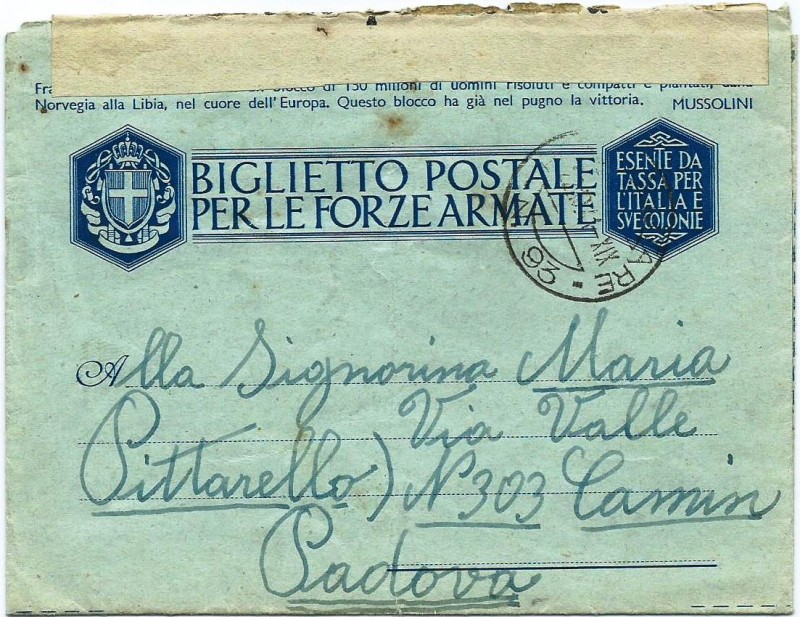 Fra blocco di 150 milioni di uomini risoluti e compatti e piantati, dalla
Norvegia alla Libia, nel cuore dell'Europa. Questo blocco ha già nel pugno la vittoria. MUSSOLINI
BIGLIETTO POSTALE
PER LE FORZE ARMATE
ESENTE DA
TASSA PER
L'ITALIA E
SVE COLONIE
93
XIX
Alla Signorina Maria
Via Valle
Pittarello) N 303 Camin
Padova